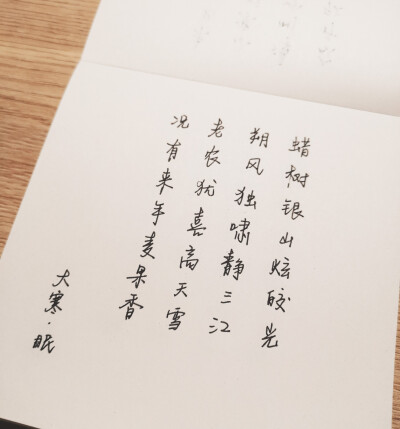 蜡树银山炫皎光
朔风独啸静三江
老农犹喜高天雪
况有来年麦果香
大寒·眠